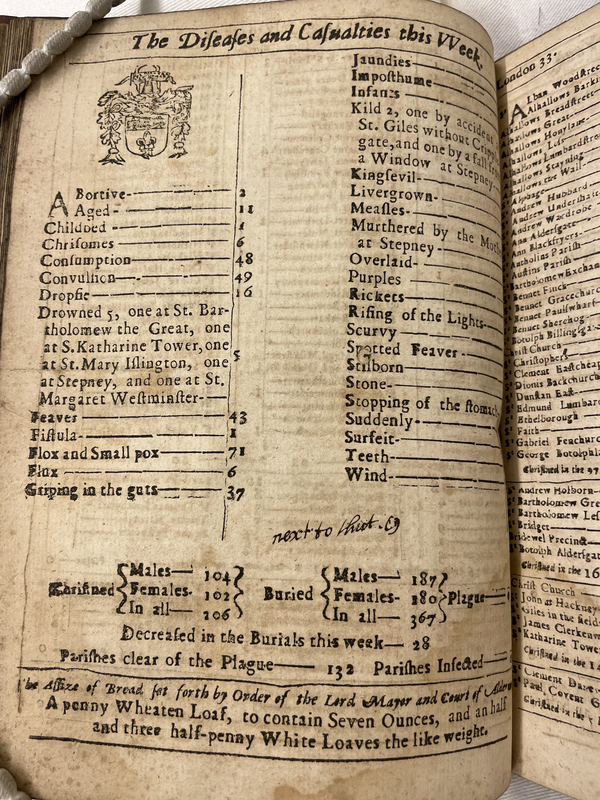 The Diſeaſes and Caſualties this VVeek.
A Bortive— 2
Aged — 11
Childbed — 1
Chriſomes — 6
Conſumption — 48
Convulſion — 49
Dropſie — 16
Drowned 5, one at St. Bar-
tholomew the Great, one
at S. Katharine Tower, one
at St. Mary Iſlington, one 5
at Stepney, and one at St.
Margaret Weſtminſter—
Feaver — 43
Fiſtula — 1
Flox and Small pox — 71
Flux — 6
Griping in the guts — 37
Jaundies
Impoſthume
Infants
Kild 2, one by accident
St. Giles without Cripple
gate, and one by a fall from
a Window at Stepney
Kingſevil
Livergrown
Meaſles
Murthered by the
at Stepney
Overlaid
Purples
Rickets
Riſing of the Lights
Scurvy
Spotted Feaver
Stilborn
Stone
Stopping of the ſtomach
Suddenly
Surfeit
Teeth
Wind
next to
Chriſtned
Males — 104
Females — 102
In all — 206
Buried
Males — 187
Females — 180
In all — 367
Plague
Decreaſed in the Burials this week — 28
Pariſhes clear of the Plague — 132 Pariſhes Infected
The Aſſize of Bread ſet forth by Order of the Lord Mayor and Court of
A penny Wheaten Loaf, to contain Seven Ounces, and an half
and three half-penny White Loaves the like weight.
London 33
Alban Woodſtreet
Alhallows Barking
hallows Breadſtreet
hallows Great
hallows Honylane
hallows Leſs
hallows Lumbardſtreet
hallows Stayning
hallows the Wall
Alphage
Andrew Hubbard
Andrew Underſhaft
Andrew Wardrobe
Ann Alderſgate
Ann Blackfryers
Antholins Pariſh
Auſtins Pariſh
Bartholomew Exchange
Bennet Finck
Bennet Gracechurch
Bennet Paulſwharf
Bennet Sherehog
Botolph Billingſgate
Chriſt Church
Chriſtophers
Clement Eaſtcheap
Dionis Backchurch
Dunſtan Eaſt
Edmund Lumbard
Ethelborough
Faith
Gabriel Fenchurch
George Botolphlane
Chriſtned in the 97
Andrew Holborn
Bartholomew Great
Bartholomew Leſs
Bridget
Bridewel Precinct
Botolph Alderſgate
Chriſtned in the 16
Chriſt Church
John at Hackney
Giles in the fields
James Clerkenwel
Katharine Tower
Chriſtned in the
Clement Danes
Paul Covent
Chriſtned in the 5